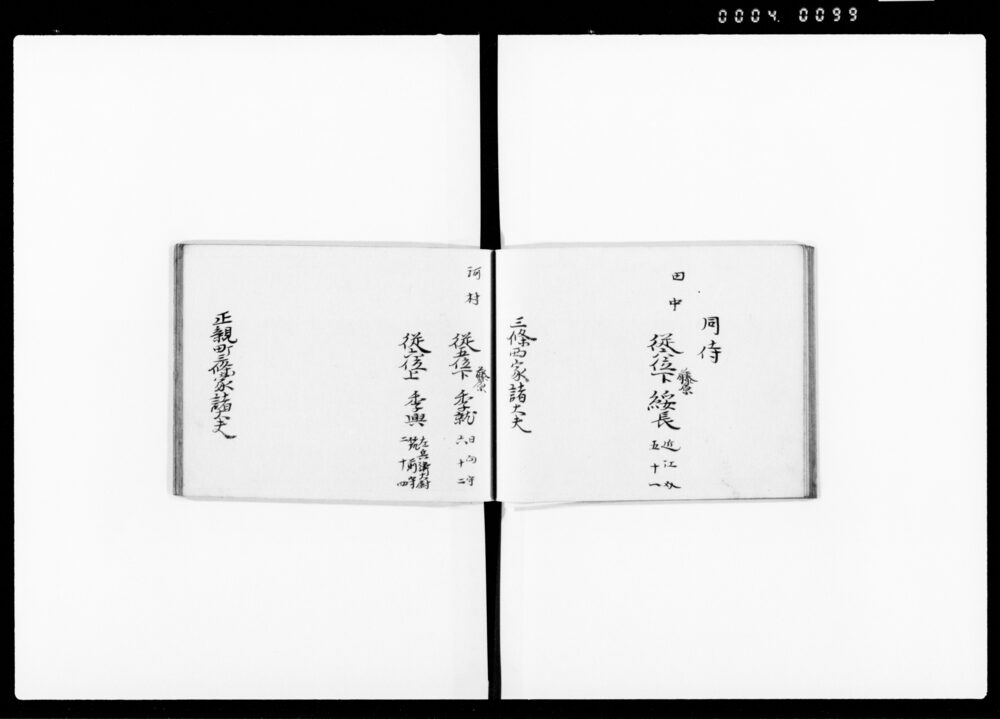 0004. 0099
同侍
田中
従六位下 藤原 綏長 近江介 五十一
三條西家諸大夫
河村
従五位下 藤原 季龍 日向守 六十二
従六位上 季興 左兵衛大尉 筑前守 二十四
正親町三條家諸大夫